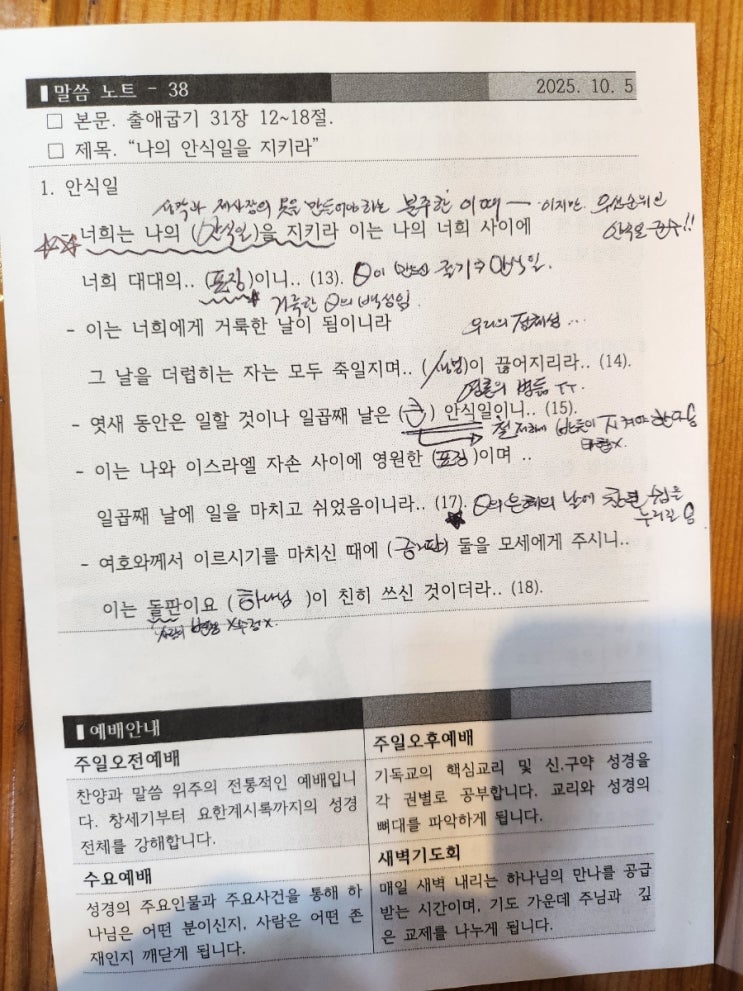 말씀 노트 - 38 2025. 10. 5
□ 본문. 출애굽기 31장 12~18절.
□ 제목. "나의 안식일을 지키라"
1. 안식일
분주한 이때 — 이지만 우선순위로
너희는 나의 (안식일)을 지키라 이는 나의 너희 사이에
안식일 준수!!
너희 대대의.. (표징)이니.. (13). 안식일.
거룩한 의 백성임
- 이는 너희에게 거룩한 날이 됨이니라
우리의 정체성 ...
그 날을 더럽히는 자는 모두 죽일지며.. (생명)이 끊어지리라.. (14).
- 엿새 동안은 일할 것이나 일곱째 날은 (큰) 안식일이니.. (15).
철저하게 지켜야
타협x.
- 이는 나와 이스라엘 자손 사이에 영원한 (표징)이며 ..
일곱째 날에 일을 마치고 쉬었음이니라.. (17). 의 은혜의 날에 참된 쉼을
누리라
- 여호와께서 이르시기를 마치신 때에 (증거판) 둘을 모세에게 주시니..
이는 돌판이요 (하나님)이 친히 쓰신 것이더라.. (18).
변경 x 수정 x.
예배안내
주일오전예배
찬양과 말씀 위주의 전통적인 예배입니
다. 창세기부터 요한계시록까지의 성경
전체를 강해합니다.
주일오후예배
기독교의 핵심교리 및 신.구약 성경을
각 권별로 공부합니다. 교리와 성경의
뼈대를 파악하게 됩니다.
수요예배
성경의 주요인물과 주요사건을 통해 하
나님은 어떤 분이신지, 사람은 어떤 존
재인지 깨닫게 됩니다.
새벽기도회
매일 새벽 내리는 하나님의 만나를 공급
받는 시간이며, 기도 가운데 주님과 깊
은 교제를 나누게 됩니다.